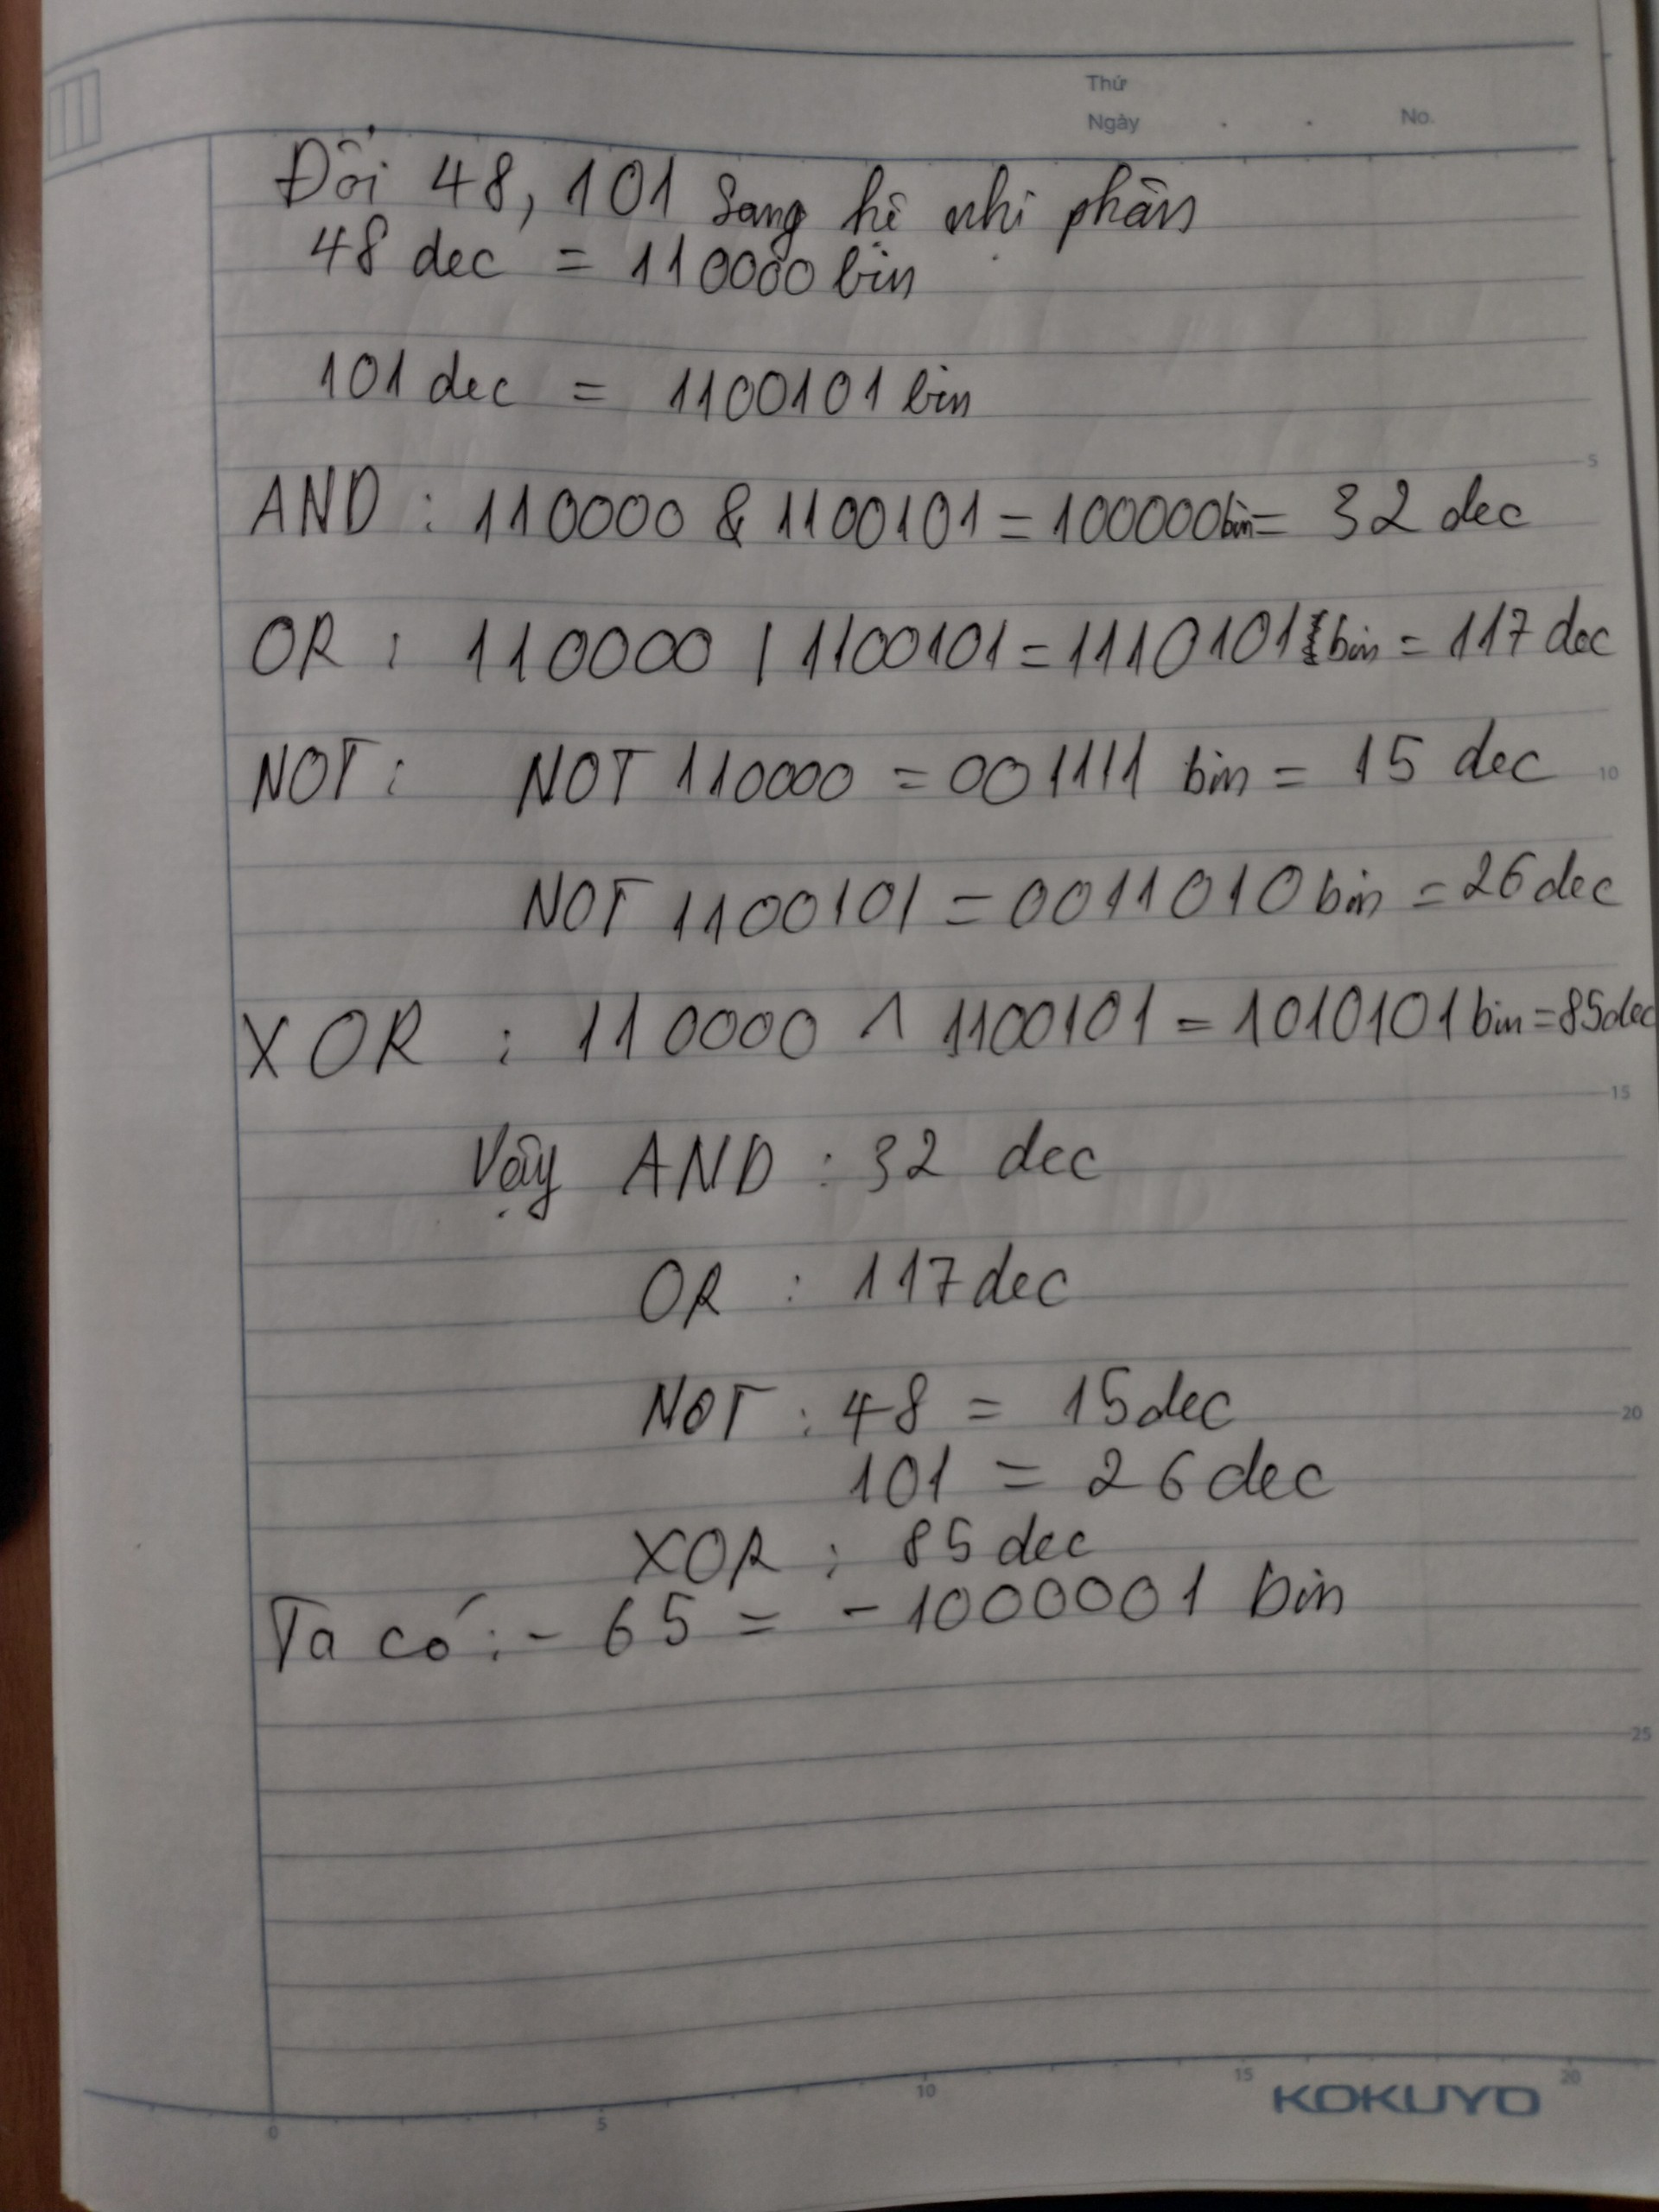 Thứ
Ngày . . No.
Đổi 48, 101 sang hệ nhị phân
48 dec = 110000 bin
101 dec = 1100101 bin
5
AND : 110000 & 1100101 = 100000bin = 32 dec
OR : 110000 | 1100101 = 1110101 bin = 117 dec
NOT : NOT 110000 = 001111 bin = 15 dec
10
NOT 1100101 = 0011010 bin = 26 dec
XOR : 110000 ^ 1100101 = 1010101 bin = 85 dec
15
Vậy AND : 32 dec
OR : 117 dec
NOT : 48 = 15 dec
20
101 = 26 dec
XOR : 85 dec
Ta có : - 65 = - 1000001 bin
25
0 5 10 15 20
KOKUYO